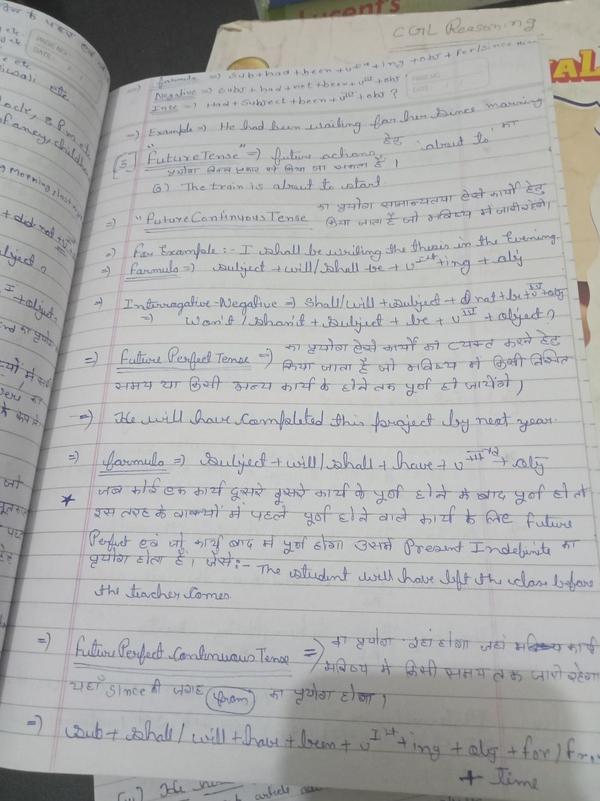 Lucent's
CGL Reasoning
formula => Sub + had + been + v + ing + obj + For/Since
Negative => Sub + had + not + been + vᴵˢᵗ + obj
Inte => Had + Subject + been + vᴵˢᵗ + obj ?
=> Example => He had been waiting for her since morning
[5] "Future Tense" => future actions हेतु 'about to' का
प्रयोग निम्न प्रकार से किया जा सकता है।
The train is about to start.
=> "Future Continuous Tense का प्रयोग सामान्यतया ऐसे कार्यो हेतु
किया जाता है जो भविष्य में जारी रहेगा।
=> For Example:- I shall be writing the thesis in the Evening.
=> Formula => Subject + will/shall be + vᴵˢᵗ + ing + obj
=> Interragative-Negative => Shall/will + Subject + not + be + + obj
=> Won't/Shan't + Subject + be + + object?
=> Future Perfect Tense => का प्रयोग ऐसे कार्यो को व्यक्त करने हेतु
किया जाता है जो भविष्य में किसी निश्चित
समय या किसी अन्य कार्य के होने तक पूर्ण हो जायेंगे।
=> He will have completed this project by next year.
=> formula => Subject + will/shall + have + vᴵᴵᴵʳᵈ + obj
* जब कोई एक कार्य दूसरे दूसरे कार्य के पूर्ण होने के बाद पूर्ण हो तो
इस तरह के वाक्यों में पहले पूर्ण होने वाले कार्य के लिए Future
Perfect एवं जो कार्य बाद में पूर्ण होगा उसमें Present Indefinite का
प्रयोग होता है। जैसे:- The student will have left the class before
the teacher comes
=> Future Perfect Continuous Tense => का प्रयोग वहां होगा जहां कार्य
भविष्य में किसी समय तक जारी रहेगा
यहाँ since की जगह (from) का प्रयोग होगा।
=> Sub + shall/will + have + been + vᴵˢᵗ + ing + obj + for/
+ Time